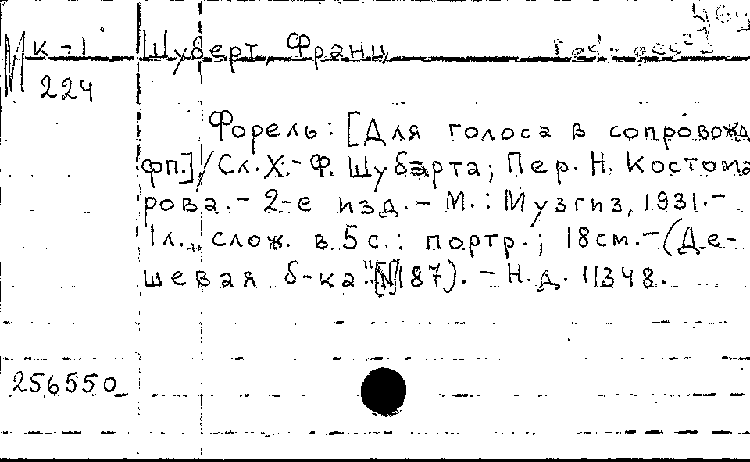 М к-1 Шуберт, Франц
224
Форель: [Для голоса в сопровожд
фп.] / Сл. Х.-Ф. Шубарта; Пер. Н. Костома
рова. - 2-е изд. - М.: Музгиз, 1931. -
1л., слож. в 5 с.: портр.; 18 см. - (Де-
шевая б-ка." [N]187). - Н.д. 11348.
256550